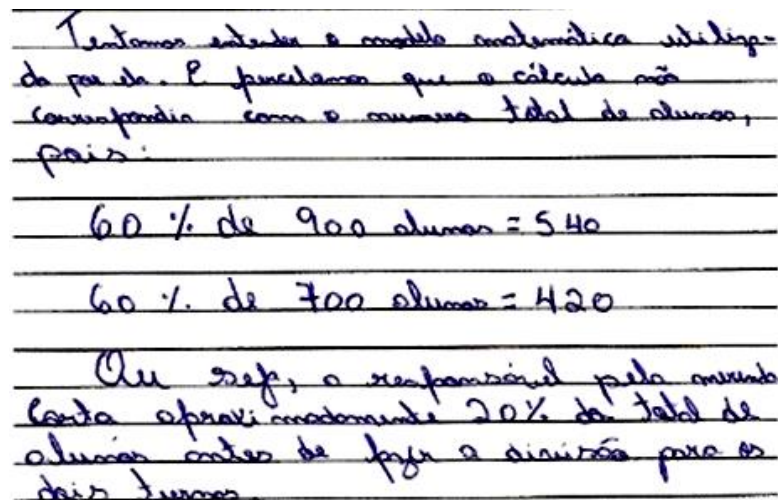 Tentamos entender o modelo matemática utiliza-
do por ela. E percebemos que o cálculo não
correspondia com o numero total de alunos,
pois:
60 % de 900 alunos = 540
60 % de 700 alunos = 420
Ou seja, o responsável pela merenda
corta aproximadamente 20% do total de
alunos antes de fazer a divisão para os
dois turnos